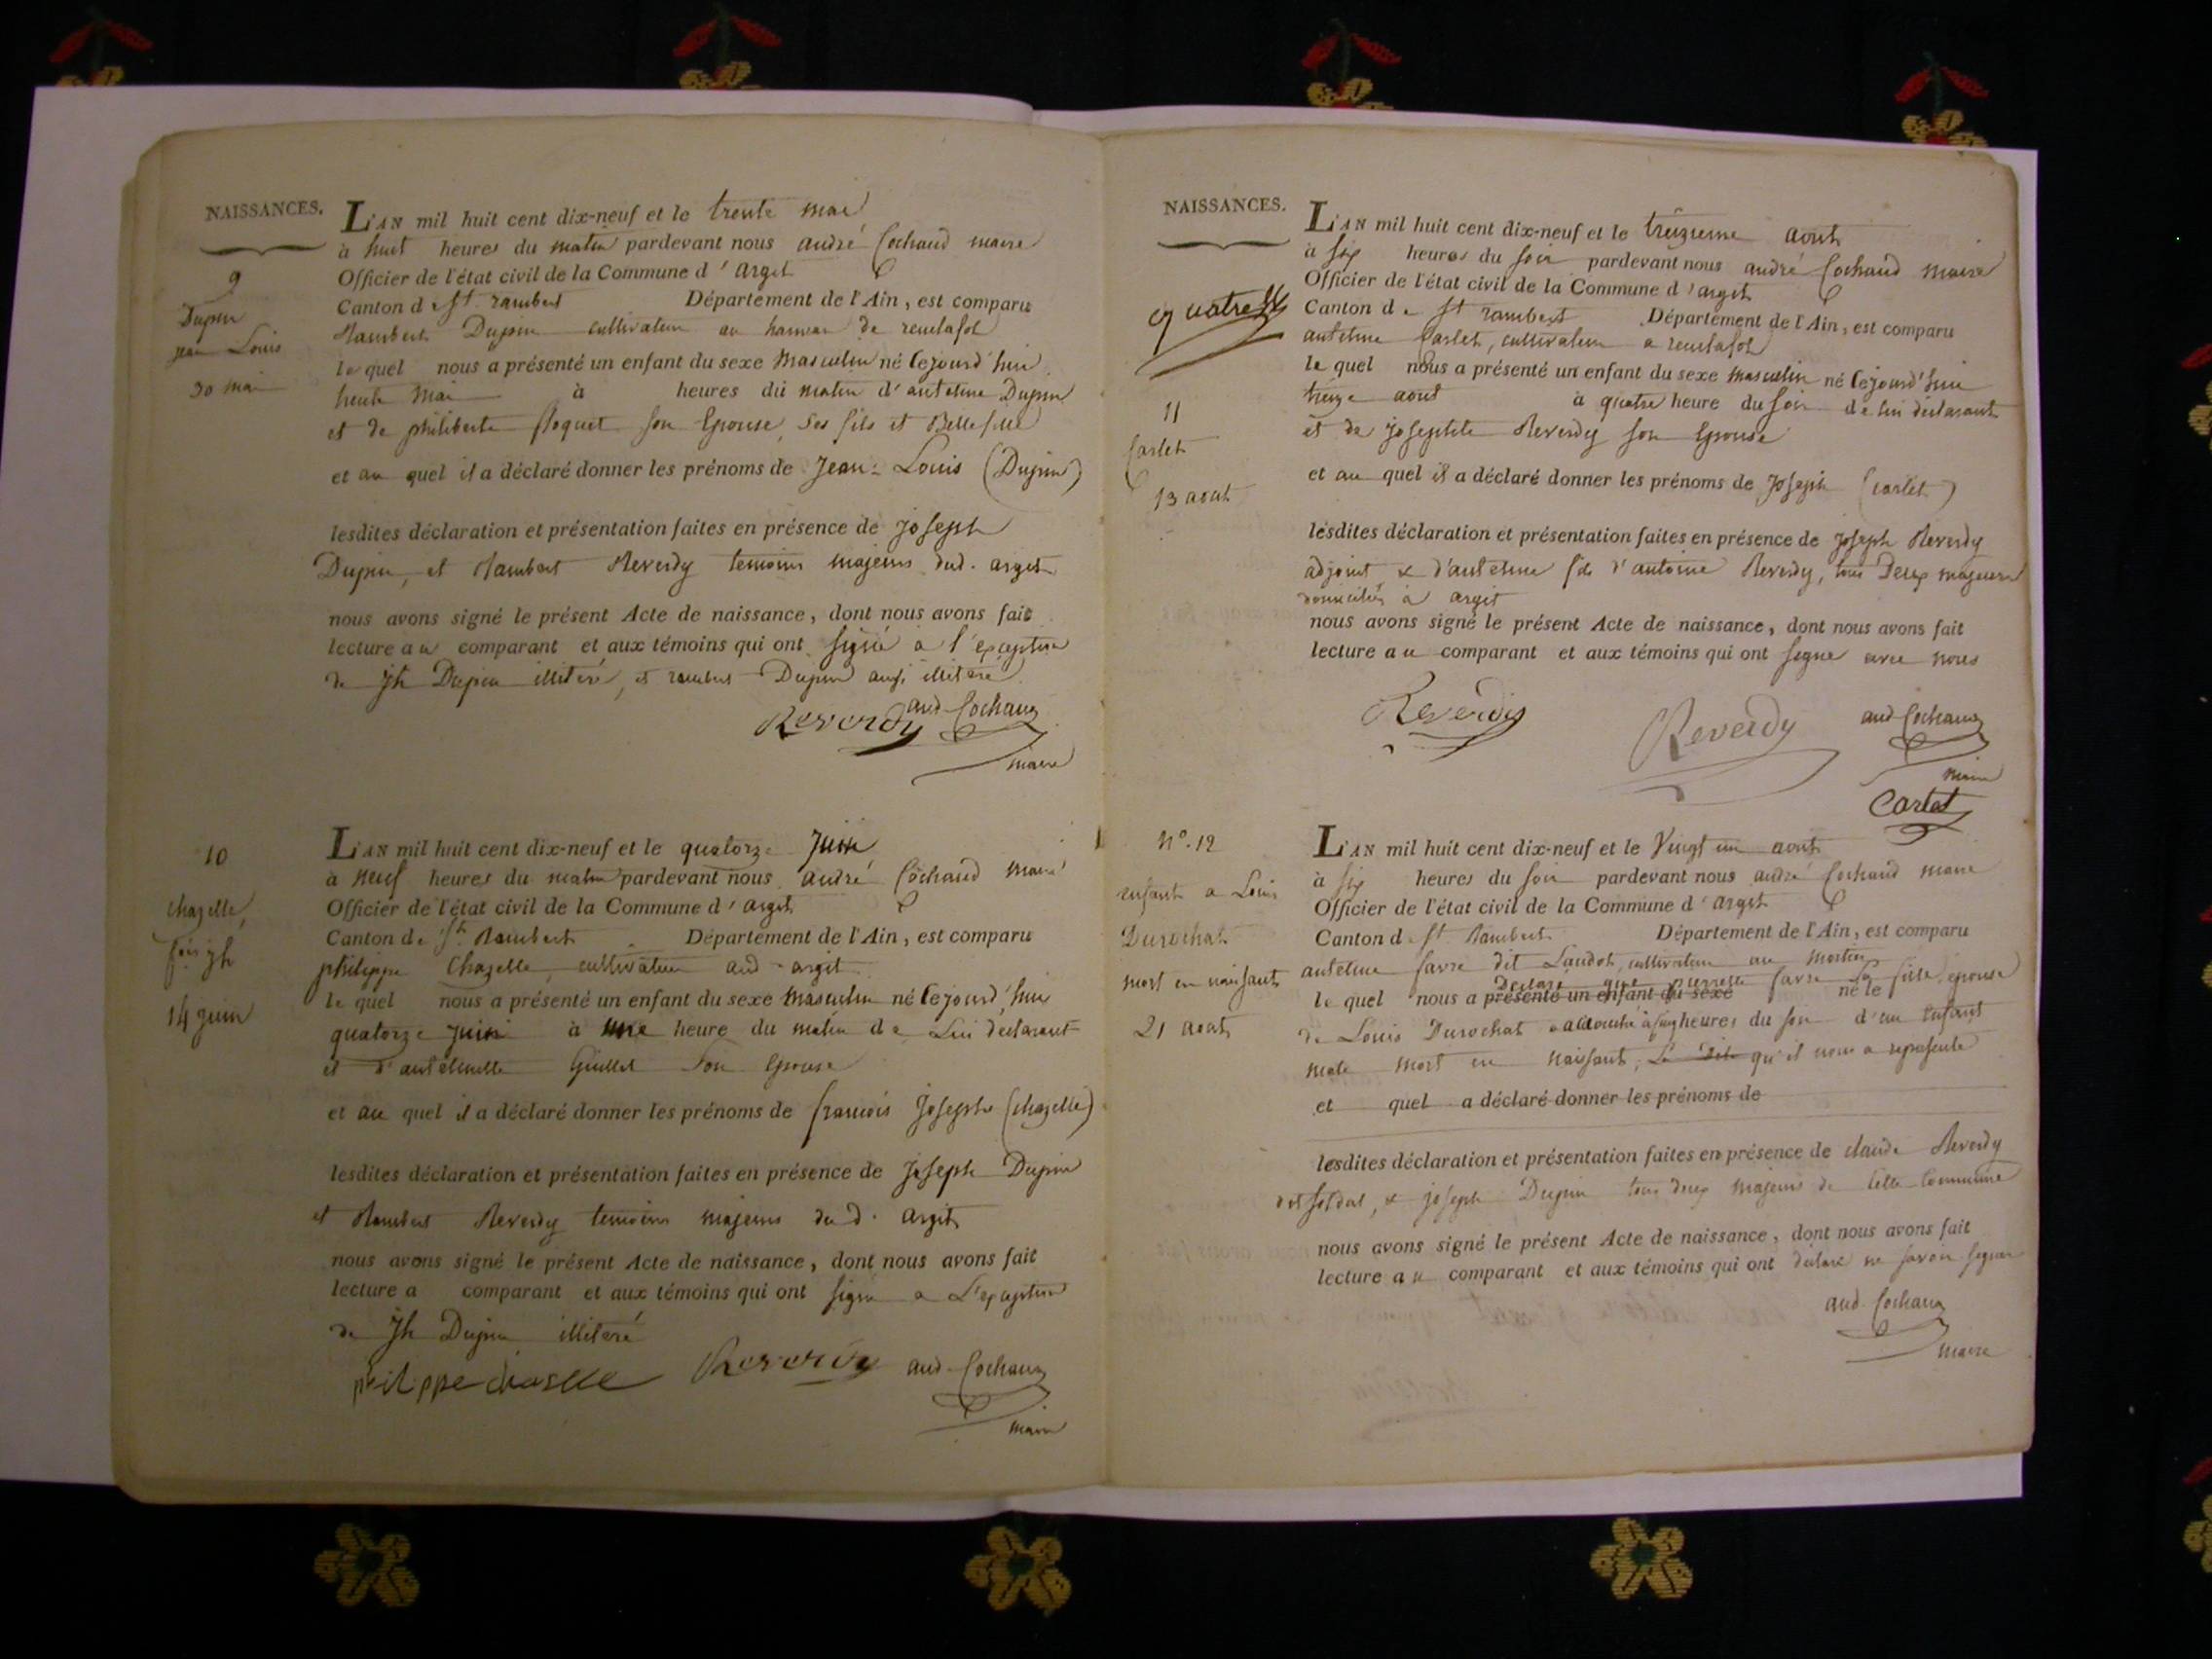 NAISSANCES.
L'AN mil huit cent dix-neuf et le trente mai
à huit heures du matin pardevant nous andré Cochaud maire
Officier de l'état civil de la Commune d'argit
Canton de St. rambert Département de l'Ain, est comparu
9
Dupin
jean Louis
30 mai
Rambert Dupin cultivateur au hameau de reculafol
le quel nous a présenté un enfant du sexe masculin né cejourd'hui
trente mai à heures du matin d'antelme Dupin
et de philiberte son Epouse, ses fils et Bellefille
et au quel il a déclaré donner les prénoms de Jean-Louis (Dupin)
lesdites déclaration et présentation faites en présence de joseph
Dupin, et Rambert Reverdy temoins majeurs dud. argit
nous avons signé le présent Acte de naissance, dont nous avons fait
lecture au comparant et aux témoins qui ont signé a l'exception
de jh Dupin illiteré, et rambert Dupin aussi illiteré
Reverdy and Cochaud
maire
10
chazelle,
fois jh
14 juin
L'AN mil huit cent dix-neuf et le quatorze Juin
à neuf heures du matin pardevant nous andré Cochaud maire
Officier de l'état civil de la Commune d'argit
Canton de St. Rambert Département de l'Ain, est comparu
philippe Chazelle, cultivateur aud. argit
le quel nous a présenté un enfant du sexe masculin né cejourd'hui
quatorze juin à une heure du matin de Lui déclarant
et d'antelmette Guillet son Epouse
et au quel il a déclaré donner les prénoms de françois Joseph (chazelle)
lesdites déclaration et présentation faites en présence de Joseph Dupin
et Rambert Reverdy temoins majeurs du d. argit
nous avons signé le présent Acte de naissance, dont nous avons fait
lecture a comparant et aux témoins qui ont signé a L'exception
de Jh Dupin illiteré
philppe chaselle Reverdy and Cochaud
maire
NAISSANCES.
quatre
11
Carlet
13 aout
L'AN mil huit cent dix-neuf et le treizieme aout
à six heures du soir pardevant nous andré Cochaud maire
Officier de l'état civil de la Commune d'argit
Canton de St rambert Département de l'Ain, est comparu
antelme Carlet, cultivateur a reculafol
le quel nous a présenté un enfant du sexe masculin né cejourd'hui
treize aout à quatre heure du soir de lui déclarant
et de josephte Reverdy son Epouse
et au quel il a déclaré donner les prénoms de Joseph (Carlet)
lesdites déclaration et présentation faites en présence de joseph Reverdy
adjoint & d'antelme fils d'antoine Reverdy, tous Deux majeurs
domiciliés à argit
nous avons signé le présent Acte de naissance, dont nous avons fait
lecture au comparant et aux témoins qui ont signé avec nous
Reverdy Reverdy and Cochaud
maire
Carlet
N°. 12
enfant a Louis
Durochat
mort en naissant
21 aout
L'AN mil huit cent dix-neuf et le Vingt un aout
à six heures du soir pardevant nous andré Cochaud maire
Officier de l'état civil de la Commune d'argit
Canton de St. Rambert Département de l'Ain, est comparu
antelme favre dit Landot, cultivateur au mortier
déclaré que pierrette favre sa fille, épouse
le quel nous a présenté un enfant du sexe né le
de Louis Durochat a accouché à cinq heures du soir d'un Enfant
male mort en naissant, qu'il nous a représenté
et quel a déclaré donner les prénoms de
lesdites déclaration et présentation faites en présence de claude Reverdy
dit soldat, & joseph Dupin tous deux majeurs de cette Commune
nous avons signé le présent Acte de naissance, dont nous avons fait
lecture au comparant et aux témoins qui ont déclaré ne savoir signer
and Cochaud
maire